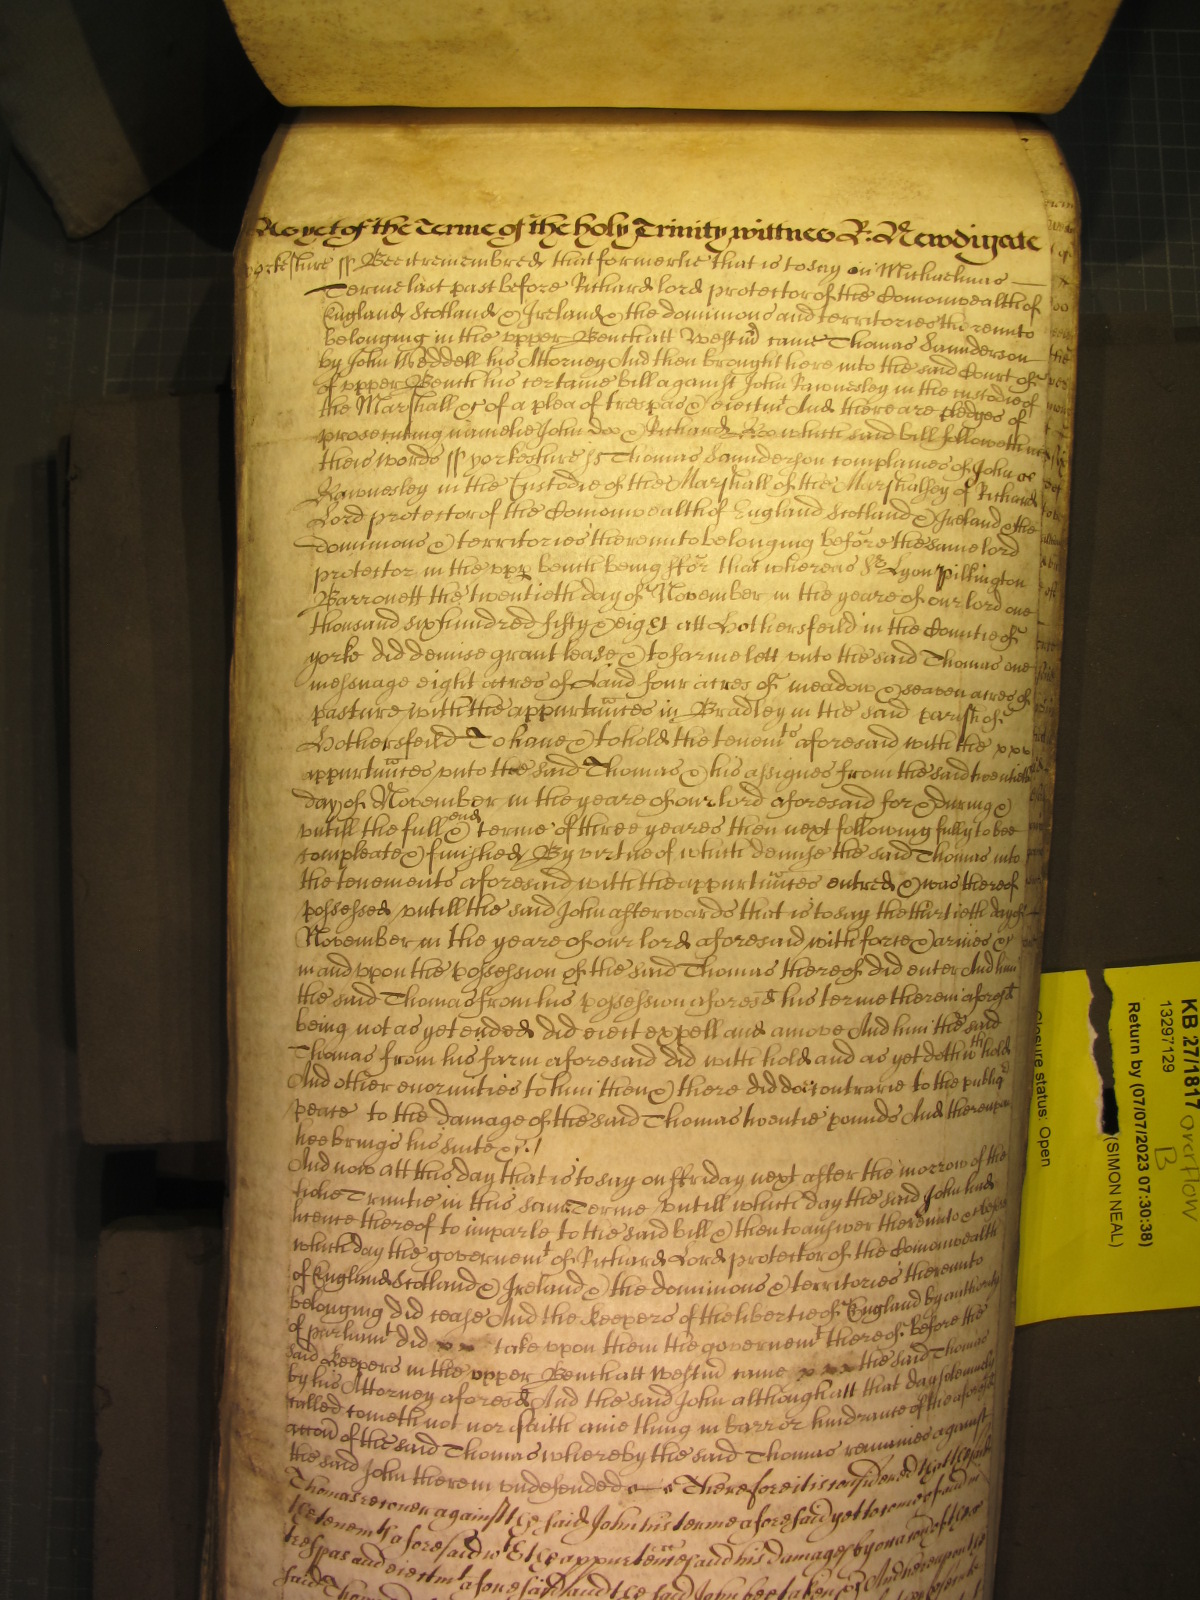 As yet of the Terme of the holy Trinity wittnes R: Newdigate
Yorkeshire ss Bee it remembred that formerlie that is to say in Michaelmas
Terme last past before Richard lord protector of the Comonwealth of
England Scotland & Ireland & the dominions and territories thereunto
belonging in the upper Bench att Westm̄ came Thomas Saunderson
by John Weddell his Attorney And then brought here into the said Court of
upper Bench his certaine bill against John Rawnesley in the custodie of
the Marshall &c of a plea of trespas & eiectmt And there are pledges of
prosecuting namelie John doo & Richard Roo which said bill followeth in
theis words ss yorkeshire ss Thomas Saunderson complaines of John
Rawnesley in the Custodie of the Marshall of the Marshallsey of Richard
Lord protector of the Comonwealth of England Scotland & Ireland & the
dominions & territories thereunto belonging before the same lord
protector in the upp bench being ffor that whereas Sr Lyon Pilkington
Barronett the twentieth day of November in the yeare of our lord one
thousand six hundred fifty & eight att Hothersfeild in the Countie of
yorke did demise grant lease & to farme lett unto the said Thomas one
messuage eight acres of Land four acres of meadow & seaven acres of
pasture with the appurtunces in Bradley in the said parish of
Hothersfeild To have & to hold the tenemts aforesaid with the
appurtunces unto the said Thomas & his assignes from the said twentieth
day of November in the yeare of our lord aforesaid for & during &
untill the full end & terme of three yeares then next following fully to bee
compleate & finished By virtue of which demise the said Thomas into
the tenements aforesaid with the appurtunces entred & was thereof
possessed untill the said John afterwards that is to say the thirtieth day of
November in the yeare of our lord aforesaid with force & armes &c
in and upon the possession of the said Thomas thereof did enter And him
the said Thomas from his possession aforesd his terme therein aforesd
being not as yet ended did eiect expell and amove And him the said
Thomas from his farm aforesaid did with hold and as yet doth wth hold
And other enormities to him then & there did do contrarie to the publiq
peace to the damage of the said Thomas twentie pounds And thereupon
hee brings his suite &c.
And now att this day that is to say on ffriday next after the morrow of the
holie Trinitie in this same Terme untill which day the said John had
licence thereof to imparle to the said bill & then to answer thereunto & before
which day the governemt of Richard Lord protector of the Comonwealth
of England Scotland & Ireland & the dominions & territories thereunto
belonging did cease And the keepers of the libertie of England by authority
of parliamt did take upon them the governemt thereof before the
said keepers in the upper Bench att Westm̄ came the said Thomas
by his Attorney aforesd And the said John although att that day solemnely
called cometh not nor saith anie thing in barr or hindrance of the aforesd
accon̄ of the said Thomas whereby the said Thomas remaines against
the said John therein undefended Therefore it is considered that the said
Thomas recover against the said John his terme aforesaid yet to come of and in
the tenemts aforesaid wth the appurtences and his damages by occasion of the
trespas and eiectmt aforesaid and the said John bee taken &c And hereupon the
said Thomas